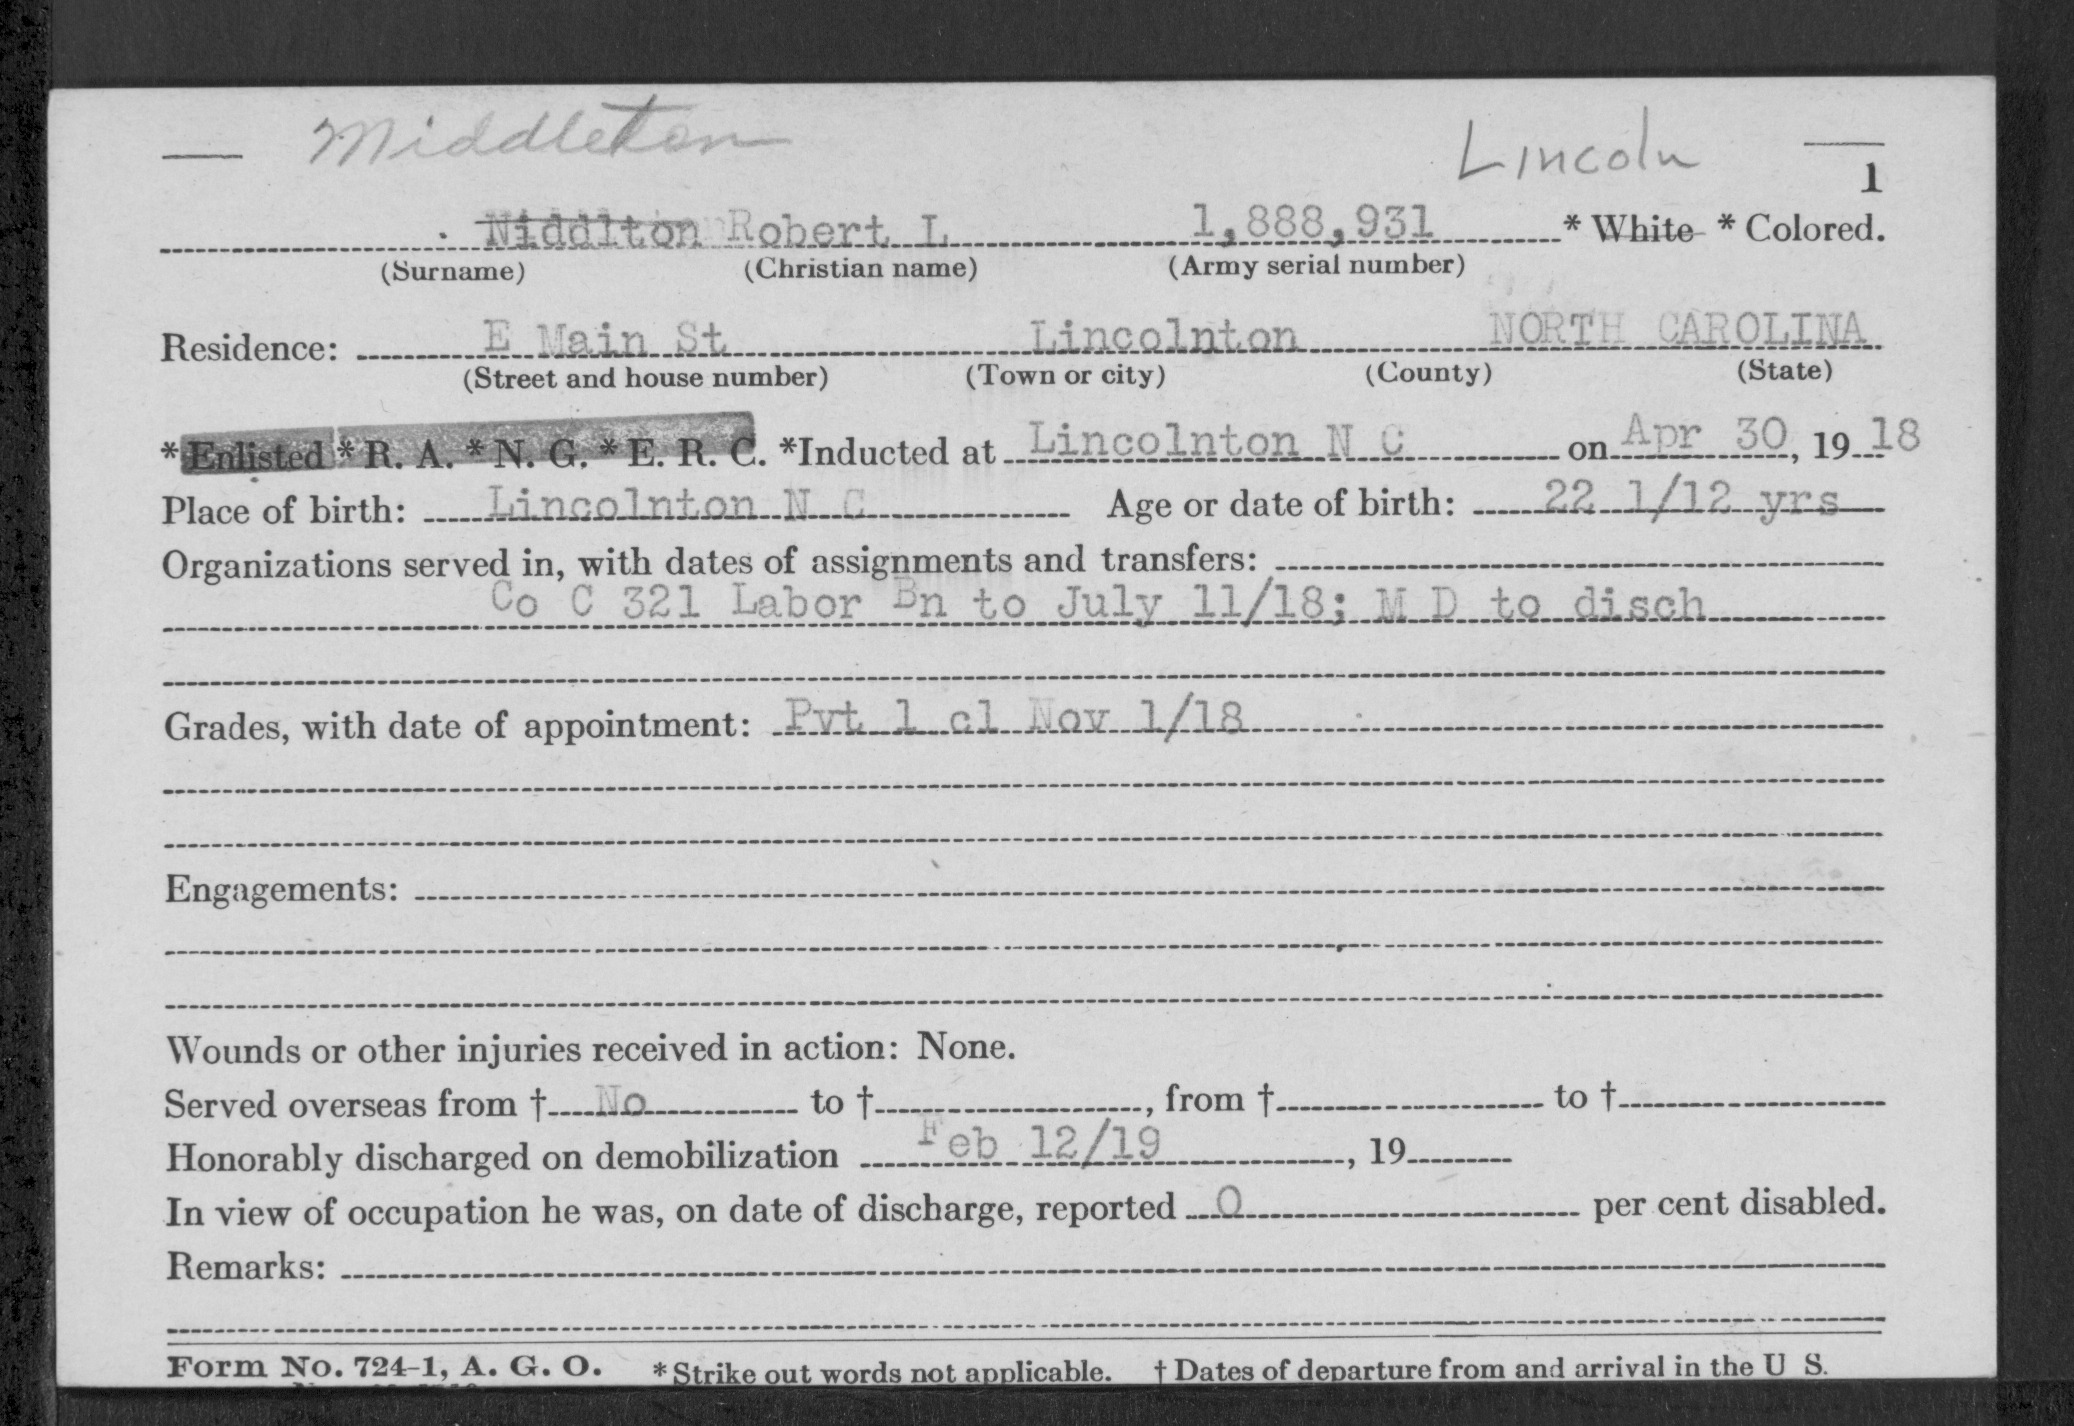 Middleton
Lincoln
1
Niddlton Robert L 1,888,931 * White * Colored.
(Surname) (Christian name) (Army serial number)
Residence: E Main St Lincolnton NORTH CAROLINA
(Street and house number) (Town or city) (County) (State)
*Enlisted *R. A. *N. G. *E. R. C. *Inducted at Lincolnton N C on Apr 30, 19 18
Place of birth: Lincolnton N C Age or date of birth: 22 1/12 yrs
Organizations served in, with dates of assignments and transfers:
Co C 321 Labor Bn to July 11/18; M D to disch
Grades, with date of appointment: Pvt 1 cl Nov 1/18
Engagements:
Wounds or other injuries received in action: None.
Served overseas from † No to †, from † to †
Honorably discharged on demobilization Feb 12/19, 19
In view of occupation he was, on date of discharge, reported 0 per cent disabled.
Remarks:
Form No. 724-1, A. G. O. *Strike out words not applicable. †Dates of departure from and arrival in the U S.